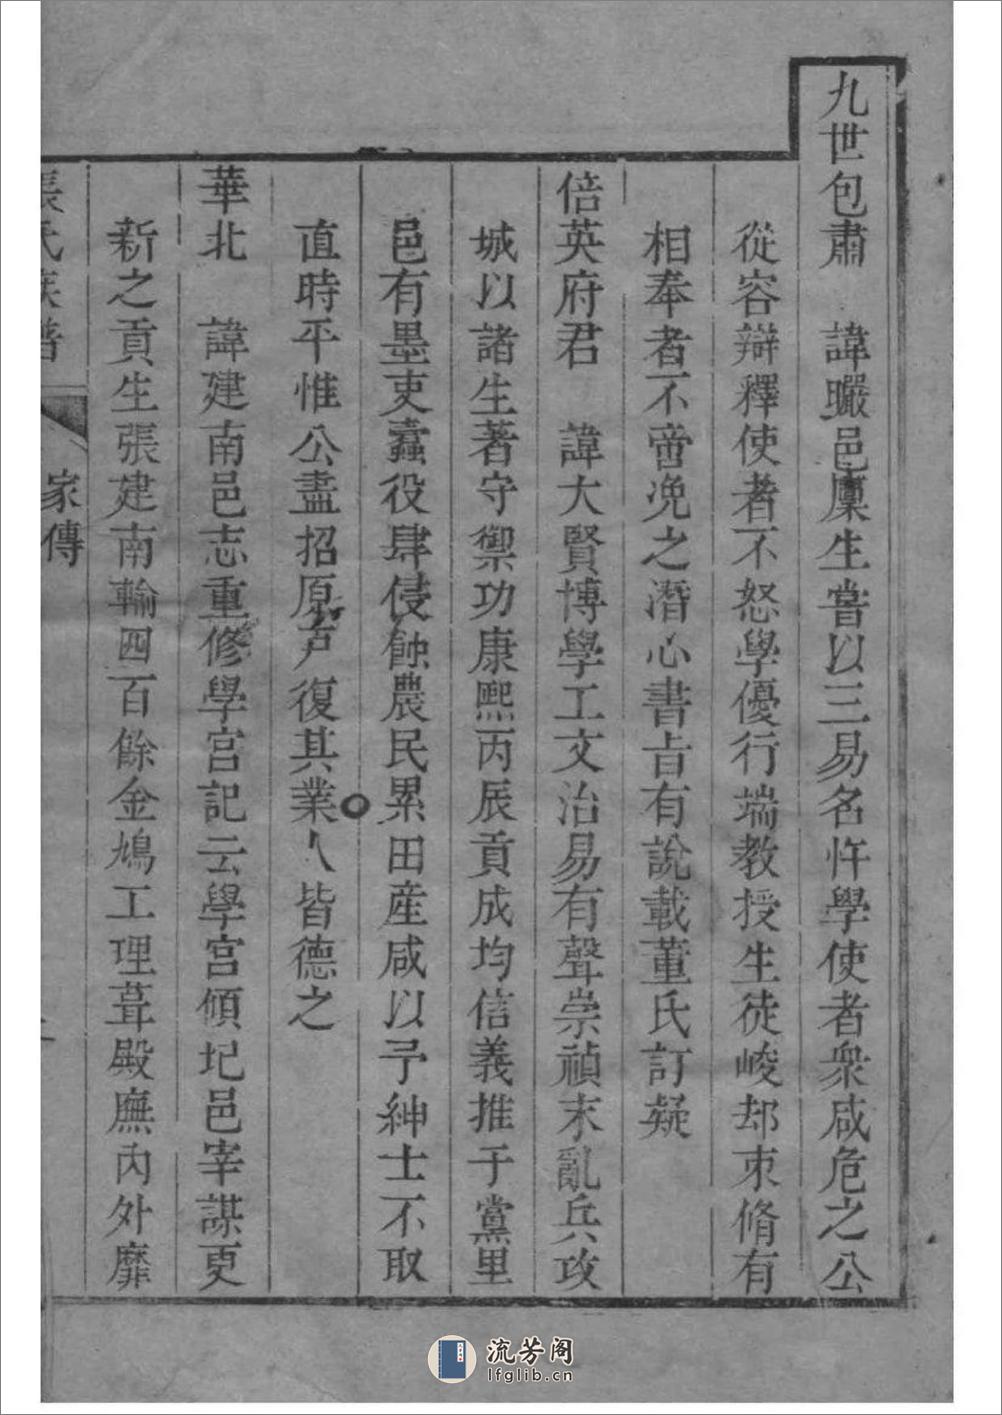 九世包肅　諱曮邑廩生嘗以三易名忤學使者衆咸危之公
從容辯釋使者不怒學優行端教授生徒峻却束脩有
相奉者不啻浼之潛心書旨有說載董氏訂疑
倍英府君　諱大賢博學工文治易有聲崇禎末亂兵攻
城以諸生著守禦功康熙丙辰貢成均信義推于黨里
邑有墨吏蠹役肆侵蝕農民累田産咸以予紳士不取
直時平惟公盡招原戶復其業人皆德之
華北　諱建南邑志重修學宮記云學宮傾圮邑宰謀更
新之貢生張建南輸四百餘金鳩工理葺殿廡內外靡
張氏族譜
家傳
流芳阁
lfglib.cn